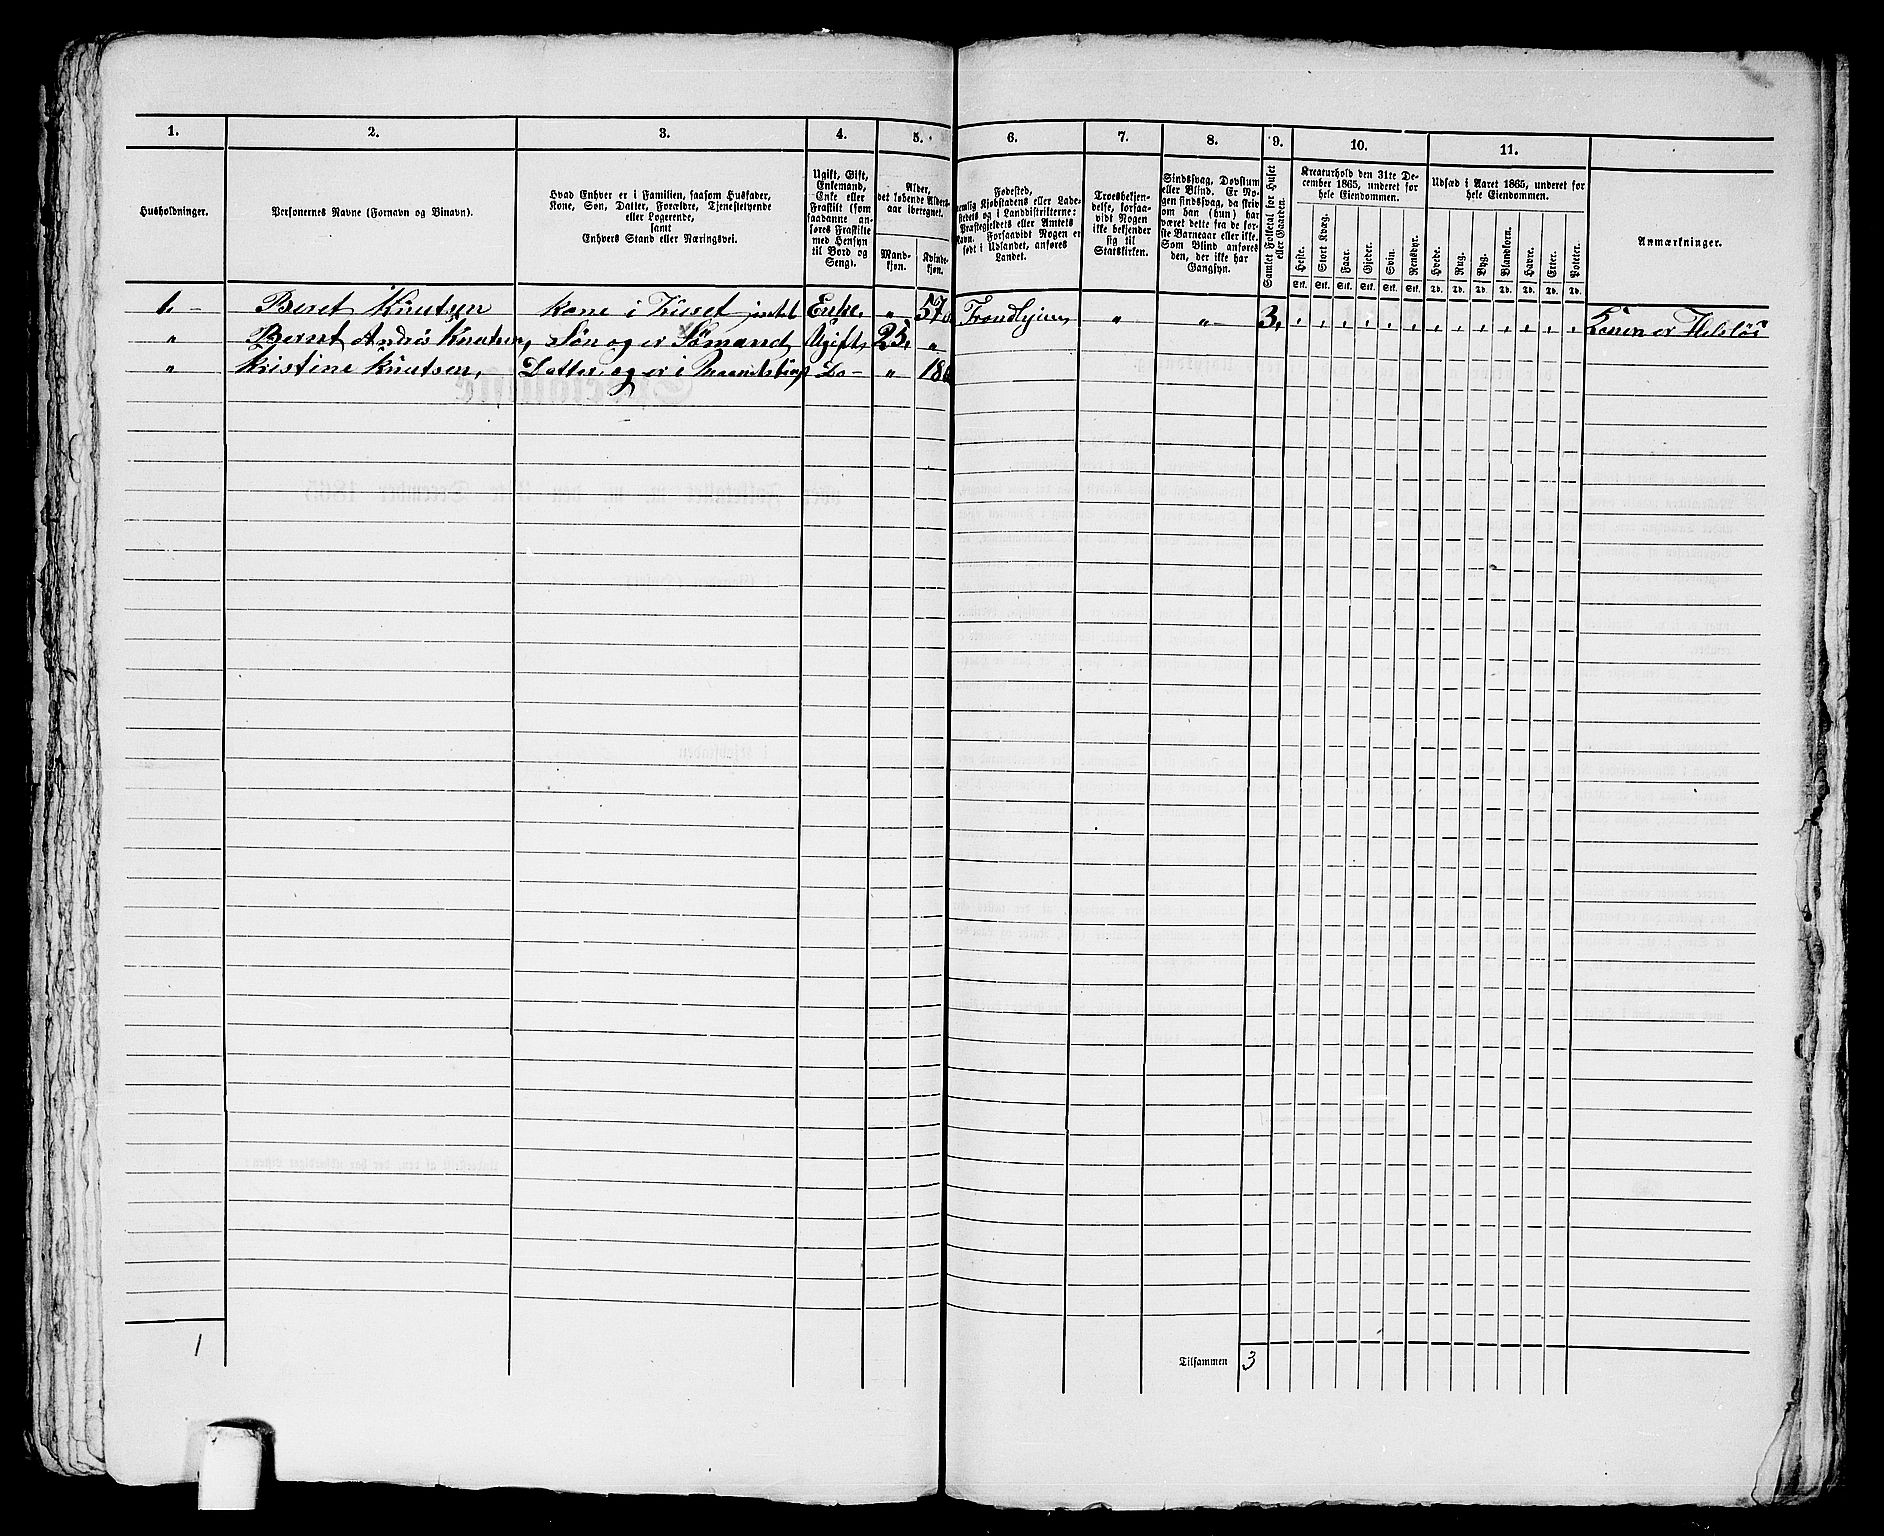 1. 2. 3. 4. 5. 6. 7. 8. 9. 10. 11.
Husholdninger.
Personernes Navne (Fornavn og Binavn).
Hvad Enhver er i Familien, saasom Husfader,
Kone, Søn, Datter, Forældre, Tjenestetyende
eller Logerende,
samt
Enhvers Stand eller Næringsvei.
Ugift, Gift,
Enkemand,
Enke eller
Fraskilt (som
saadanne an-
føres Fraskilte
med Hensyn
til Bord og
Seng).
Alder,
det løbende Alders-
aar iberegnet.
Mand-
kjøn.
Kvinde-
kjøn.
Fødested,
nemlig Kjøbstadens eller Lade-
stedets og i Landdistrikterne:
Præstegjeldets eller Amtets
Navn. Forsaavidt Nogen er
født i Udlandet, anføres
Landet.
Troesbekjen-
delse, forsaa-
vidt Nogen
ikke bekjender
sig til
Statskirken.
Sindssvag, Døvstum
eller Blind. Er No-
gen sindssvag, da skriv
om han (hun) har
været dette fra de før-
ste Barneaar eller ikke.
Som Blind anføres
den, der ikke har
Gangsyn.
Samlet Folketal for Huset
eller Gaarden.
Kreaturhold den 31te De-
cember 1865, underet for
hele Eiendommen.
Heste. Stort Kvæg. Faar. Gjeder. Svin. Rensdyr.
Stk. Stk. Stk. Stk. Stk. Stk.
Udsæd i Aaret 1865, underet for
hele Eiendommen.
Hvede. Rug. Byg. Blandkorn. Havre. Erter. Poteter.
Td. Td. Td. Td. Td. Td. Td.
Anmærkninger.
1. – Beret Knutsen kone i Huset intet Enke, „ 57 Trondhjem, „ „– 3,
„ Bernt Andrås Knutsen, Søn og er Sømand Ugift, 25, „
„ Kristine Knutsen, Datter og er i Do– „ 18
1
Tilsammen 3